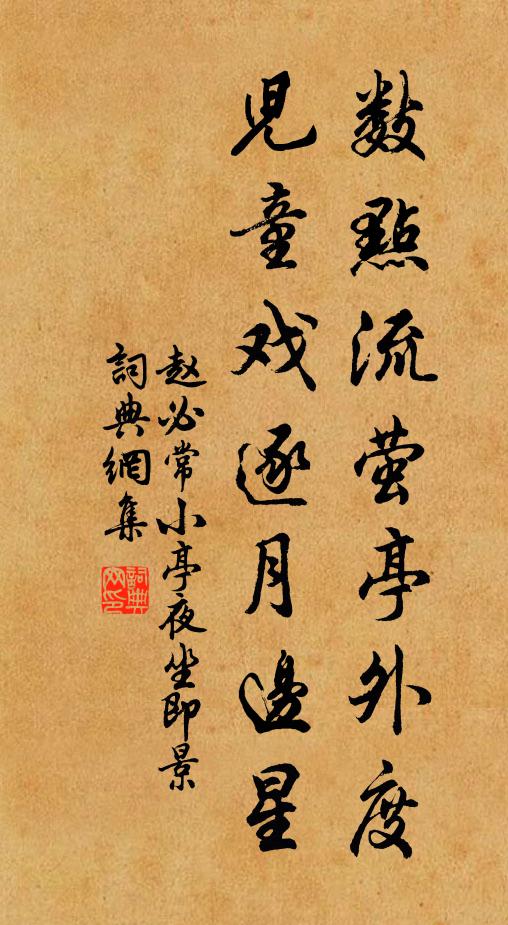 數點流萤亭外度
兒童戏逐月邊星
赵必常小亭夜坐即景
詞典網集
詞典网印